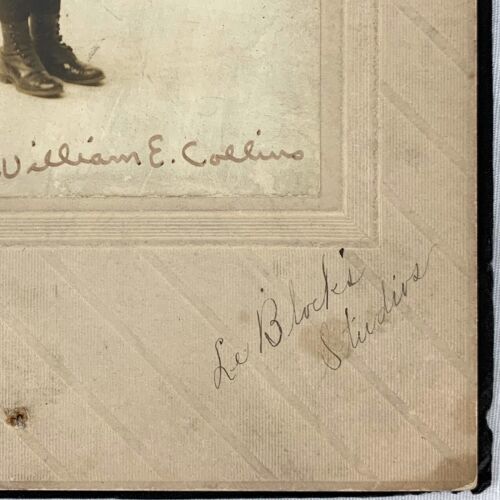 William E. Collins
Le Block's
Studios